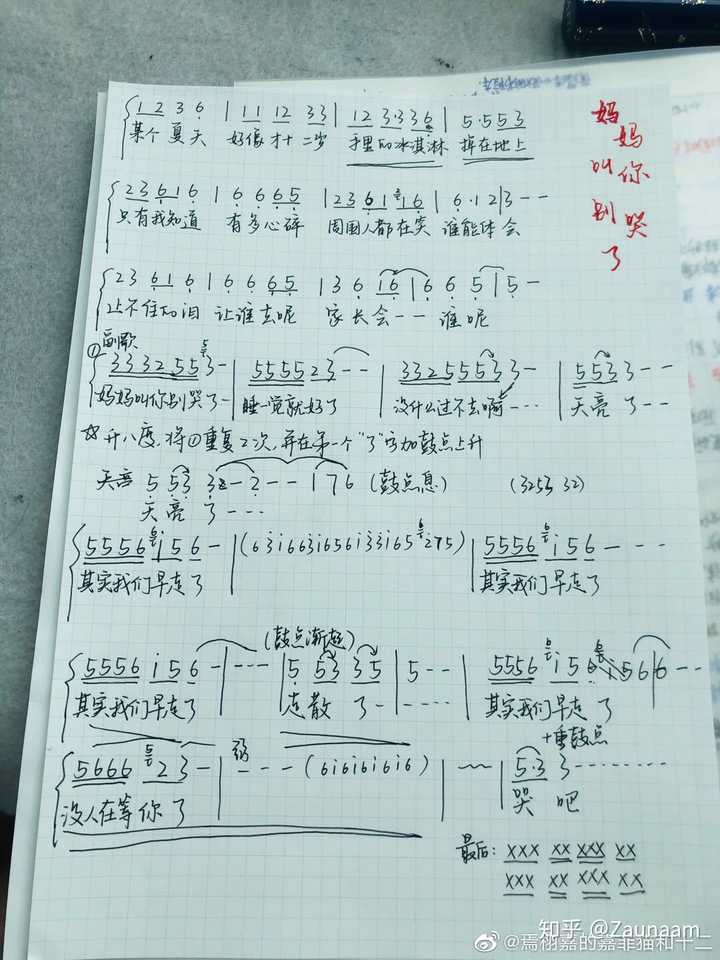 妈妈叫你别哭了
1 2 3 6 | 1 1 12 33 | 12 3·3 36 | 5·5 53
某个 夏天 好像才十二岁 手里的冰淇淋 掉在地上
23 61 6 | 6 6 65 | 23 61 16 | 6·12 | 3 - -
只有我知道 有多心碎 周围人都在笑 谁能体会
23 61 6 | 6 6 65 | 3 6 16 | 6 6 5 | 5 -
止不住的泪 让谁去呢 家长会 - - 谁呢
副歌
① 3332 553 - | 5555 23 - - | 332 5553 3 - | 5533 - -
妈妈叫你别哭了 - 睡一觉就好了 没什么过不去啊 - - - 天亮 了 - -
☆升八度,将①重复2次,并在第一个"了"字加鼓点上升
天亮 5 53 3 - - 2 - - - 1 7 6 (鼓点息) (3253 32)
天亮 了 - - -
5556 i 5 6 - | (63i663i656i33i65 i275) | 5556 i 5 6 - - - -
其实我们早走了 其实我们早走了
(鼓点渐起)
5556 i 5 6 - | - - - | 5 53 35 | 5 - - | 5556 i 5 6 i566 - - -
其实我们早走了 走散 了 - - - - - 其实我们早走 了
+重鼓点
5666 23 - | 弱 - - - (6i6i6i6i6) | ~~ | 5·3 3 - - - - - -
没人在等你了 哭 吧
最后: XXX XX XXX XX
XXX XX XXX XX
知乎 @Zaunaam
@焉栩嘉的嘉菲猫和十二